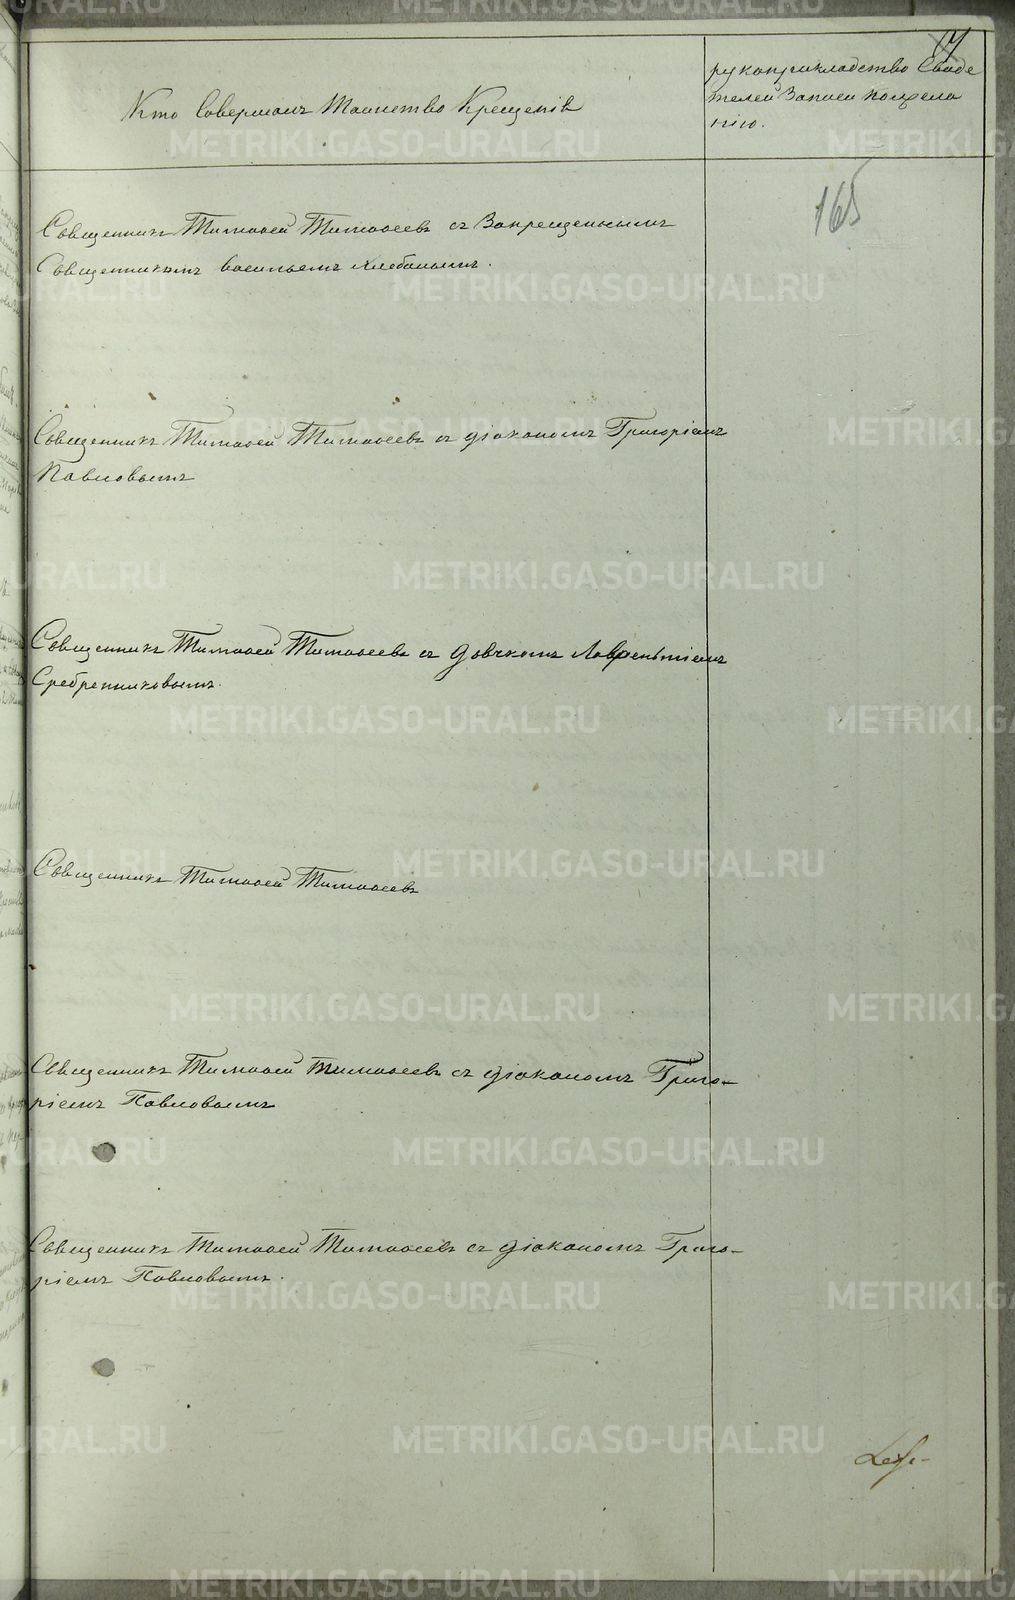 Кто Совершалъ Таинство Крещенія
рукоприкладство Свиде
телей Записи пожела
нію.
165
Священникъ Тимофей Тимофеевъ съ Запрещеннымъ
Священникомъ Васильемъ Хлебинымъ.
Священникъ Тимофей Тимофеевъ съ діакономъ Григоріемъ
Павловымъ
Священникъ Тимофей Тимофеевъ съ дьячкомъ Лаврентіемъ
Сребренниковымъ.
Священникъ Тимофей Тимофеевъ
Священникъ Тимофей Тимофеевъ съ діакономъ Григо-
ріемъ Павловымъ
Священникъ Тимофей Тимофеевъ съ діакономъ Григо-
ріемъ Павловымъ.
METRIKI.GASO-URAL.RU